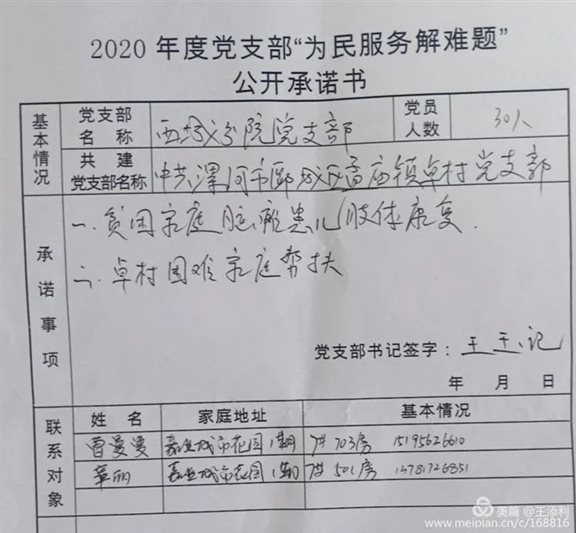 2020 年度党支部“为民服务解难题”
公开承诺书
基本情况
党支部名称 西城分院党支部 党员人数 30人
共建党支部名称 中共漯河市郾城区孟庙镇卓村党支部
承诺事项
一、贫困家庭脑瘫患儿肢体康复.
二、卓村困难家庭帮扶
党支部书记签字：
年 月 日
联系对象
姓名 家庭地址 基本情况
曹曼曼 嘉业城市花园1期 7# 703房 15195626610
嘉业城市花园1期 7# 501房
美篇 @王添利
www.meipian.cn/c/168816